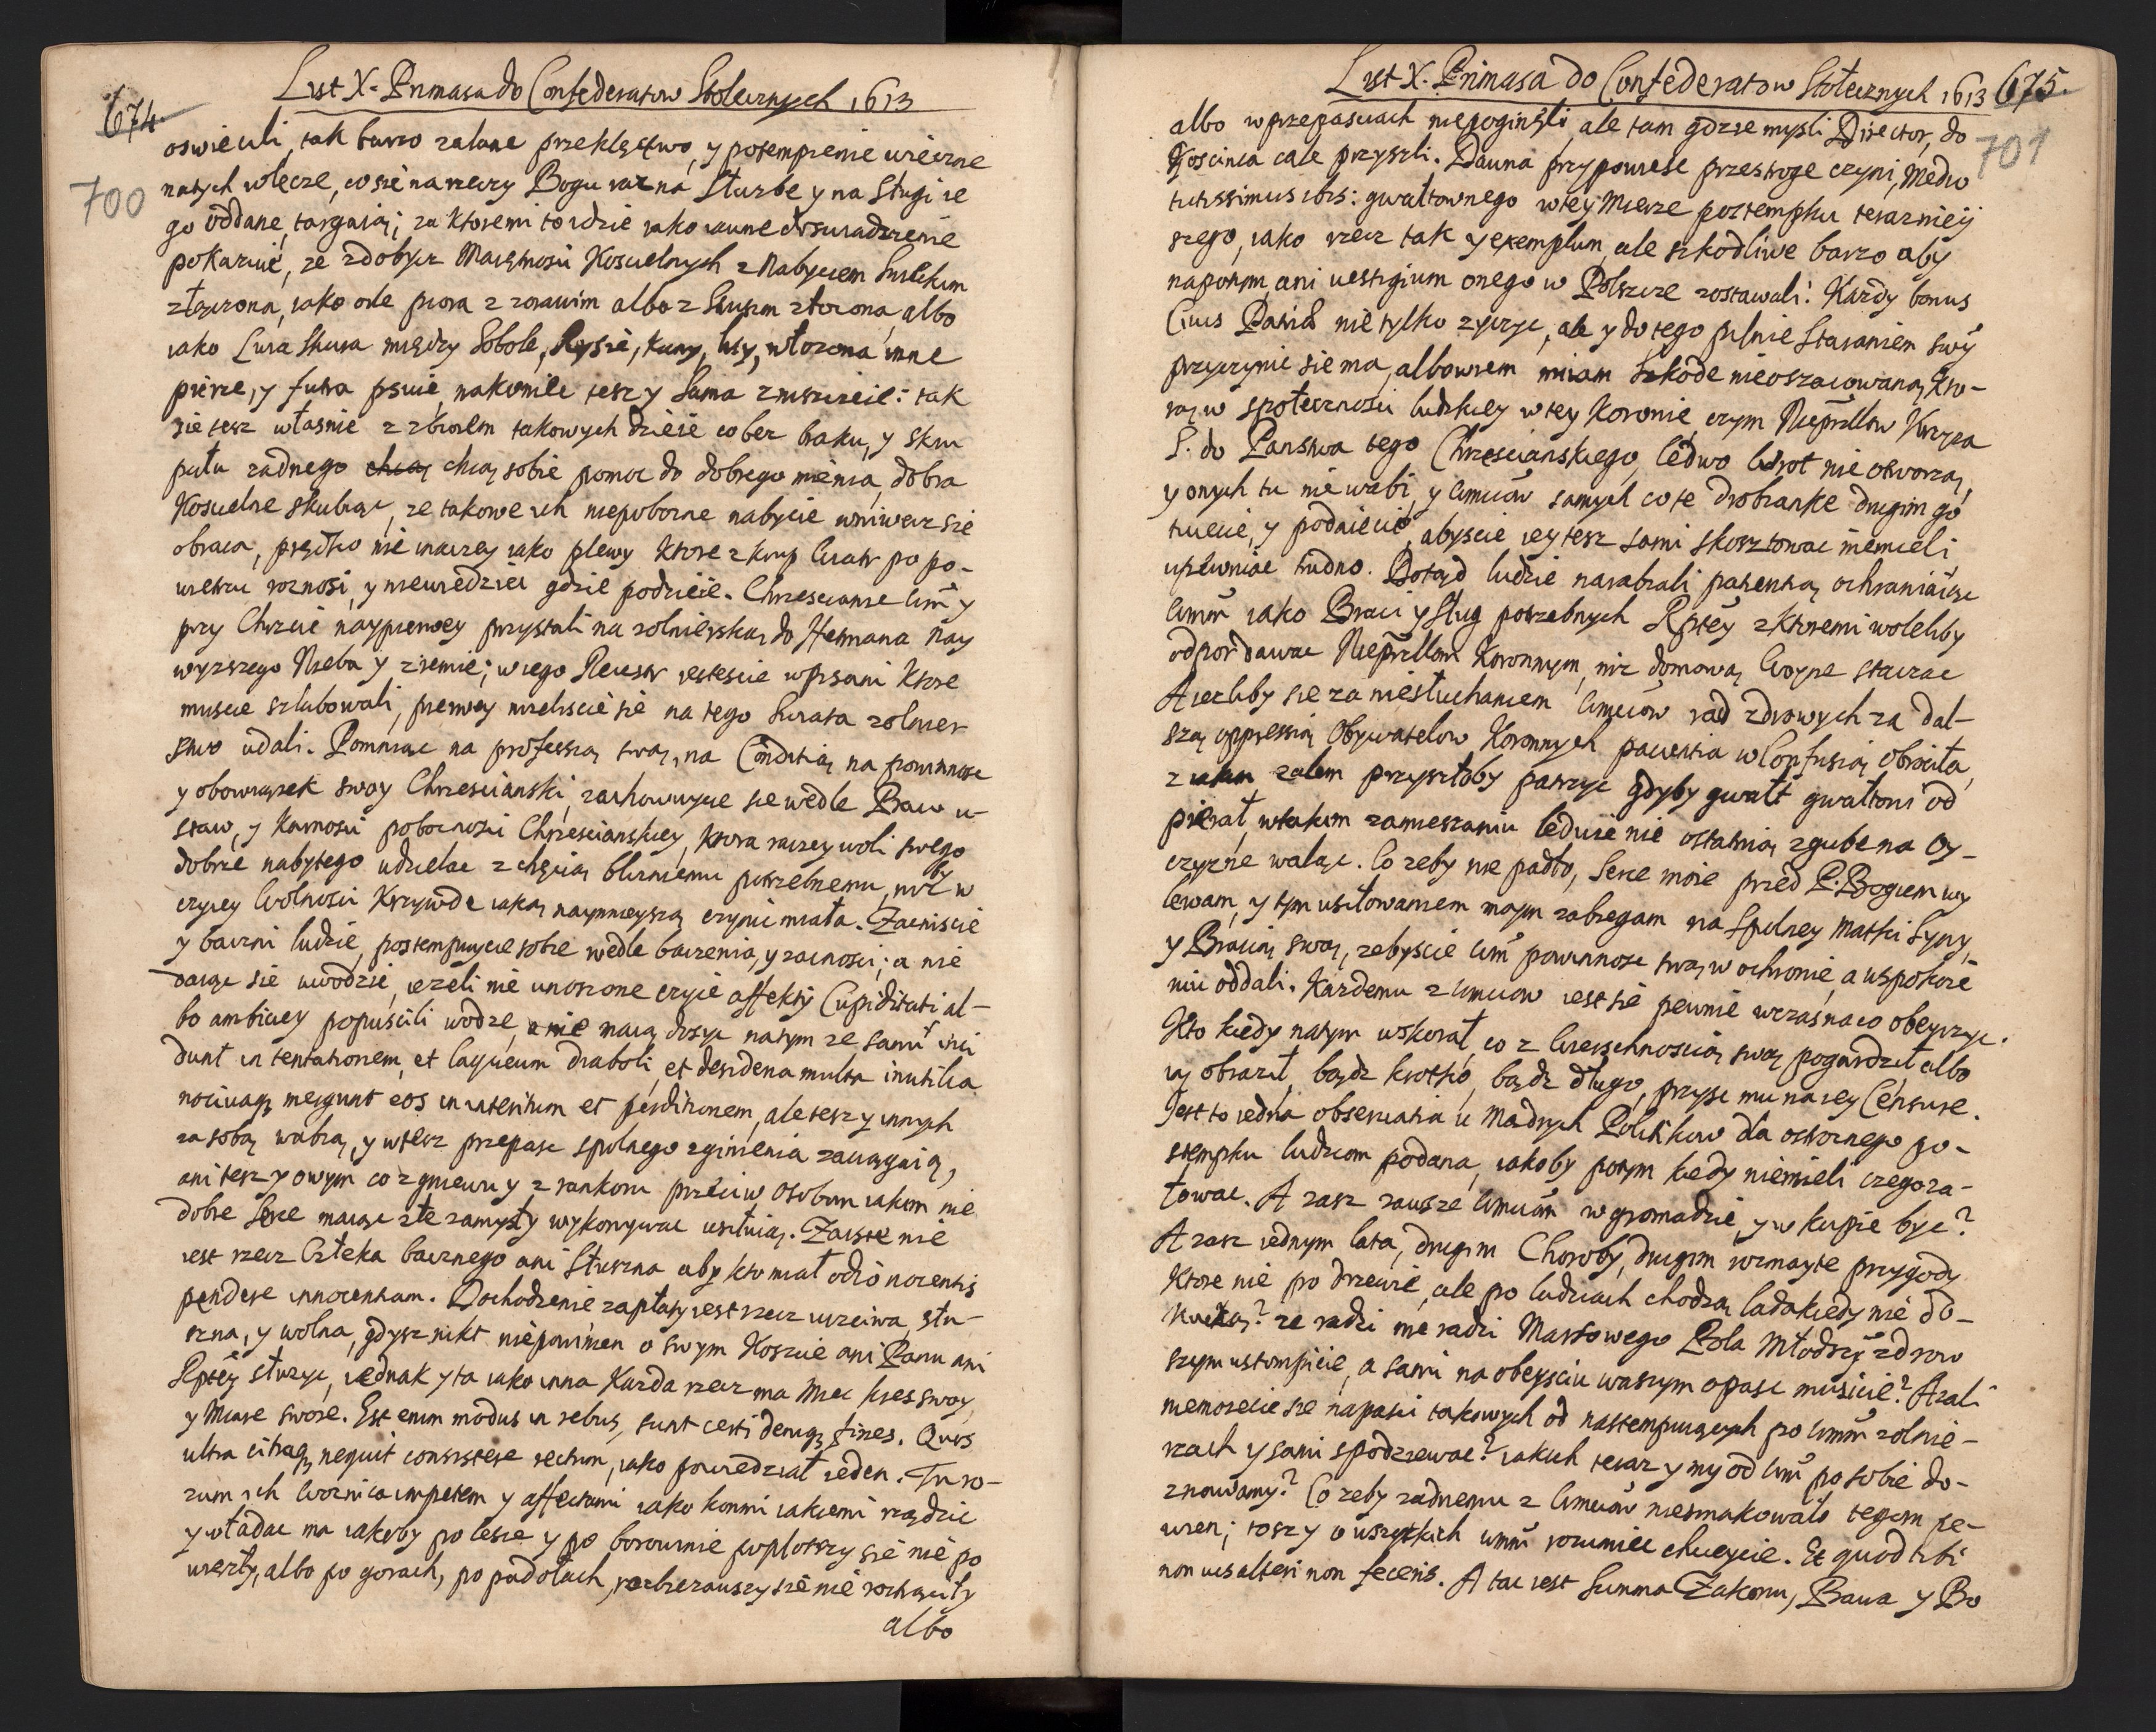 List X. Primasa do Confederatow Stołecznych 1613
674.
700
oswieceli, tak barzo zalane przeklęctwo, y potempienie wieczne
natych wlecze, co sie na rzeczy Bogu na Służbe y na Sługi ie
go oddane, targaią; za ktoremi to idzie iako iawne doswiadczenie
pokazuie, ze zdobycz Maiętnosci Koscielnych z Nabyciem Swieckim
złączona, iako orle piora z zorawim albo z Gęsim złozona, albo
iako Lisia skora między Sobole, Rysie, Kuny, lisy, włozona inne
pierze, y futra psuie, nakoniec tesz y Sama zniszczeie: tak
sie tesz własnie z zbiorem takowych dzieie co bez braku, y skru
pułu zadnego chcą sobie pomoc do dobrego mienia, dobra
Koscielne skubiąc, ze takowe ich niepoborne nabycie wniwecz sie
obraca, prędko nie inaczey iako plewy ktore z krup wiatr po po-
wietrzu roznosi, y niewiedziec gdzie podzieie. Chrzescianie Wm̃ y
przy Chrzcie naypierwey przystali na zolnierską do Hetmana nay
wyzszego Nieba y ziemie; w iego Reiestr iestescie wpisani ktore
muscie szlubowali, pierwey nizeliscie sie na tego Swiata zolnier
stwo udali. Pomniąc na professią swą, na Conditią na powinnosc
y obowiązek swoy Chrzescianski, zachowuycie sie wedle Praw u-
staw, y Karnosci poboznosci Chrzescianskiey, ktora raczey woli swego
dobrze nabytego udzielac z chęcią blizniemu potrzebnemu, niz by w
czyiey Wolnosci Krzywde iaką naymnieyszą czynic miała. Zacniscie
y baczni ludzie, postempuycie sobie wedle baczenia, y zacnosci; a nie
daiąc sie uwodzic, iezeli nie unoszone czyie affekty Cupiditati al-
bo ambiciey popuscili wodze, a nie maią dosyc natym ze sami inci
dunt in tentationem, et laqueum diaboli, et desideria multa inutilia
nociuaq₃ mergunt eos in interitum et perditionem, ale tesz y innych
za sobą wabią, y wtesz przepasc spolnego zginienia zaciągaią,
ani tesz y owym co z gniewu y z rankoru przeciw osobom iakom nie
dobre Serce maiąc złe zamysły wykonywac usiłuią. Zaiste nie
iest rzecz Człeka bacznego ani Słuszna aby kto miał odio nocentis
perdere innocentiam. Dochodzenie zapłaty iest rzecz uczciwa, słu-
szna, y wolna, gdysz nikt niepowinien o swym Koszcie ani Panu ani
Rptey słuzyc, iednak y ta iako inna Kazda rzecz ma Miec kres swoy,
y Miare swoie. Est enim modus in rebus, sunt certi deniq₃ fines. Quos
ultra citraq₃ nequit consistere rectum, iako powiedział ieden. Tu ro-
zum ich Woznica impetem y affectami iako konmi iakiemi rządzic
y władac ma iakoby po lesie y po borownie popłoszy sie nie po
wierzły, albo po gorach, po padołach, rozbiezawszy sie nie rostrąciły
albo
List X. Primasa do Confederatow Stołecznych 1613 675.
701
albo w przepasciach niepoginęły, ale tam gdzie mysli Director, do
Goscinca cale przyszli. Dawna przypowiesc przestroge czyni, Medio
tutissimus ibis: gwałtownego w tey Mierze postempku terazniey
szego, iako rzecz tak y exemplum, ale szkodliwe barzo aby
napotym, ani uestigium onego w Polszcze zostawali. Kazdy bonus
Ciuis Patriæ nie tylko zyczyc, ale y do tego pilnie Staraniem swym
przyczynic sie ma, albowiem miiam szkode nieoszacowaną, kto-
rą w społecznosci ludzkiey w tey Koronie czym Nieprillow Krzyza
S. do Panstwa tego Chrzescianskiego, ledwo Wrot nie otworzą,
y onych tu nie wabi, y Wmciow samych co te drobianke drugim go
tuiecie, y podniecie, abyscie iey tesz sami skosztowac niemieli
upewniac trudno. Dotąd ludzie narabiali patientią, ochraniaiąc
Wmm iako Braci y Sług potrzebnych Rptey z ktoremi woleliby
odpor dawac Nieprillom Koronnym, niz domową Woyne staczac
A iezliby sie za niesłuchaniem Wmciow rad zdrowych za dal-
szą oppressią Obywatelow Koronnych patientia w Confusią obrociła,
z iakim zalem przyszłoby patrzyc gdyby gwałt gwałtem od
pierał, w takim zamieszaniu ledwie nie ostatnią zgube na Oy-
czyzne waląc. Co zeby nie padło, Serce moie przed P. Bogiem wy
lewam, y tym usiłowaniem moym zabiegam na spolney Matki Syny,
y Bracią swoią, zebyscie Wm̃ powinnosc swą w ochronie, a uspokoie
niu oddali. Kazdemu z Wmciow iest sie pewnie wczas na co obeyrzyc.
Kto kiedy natym wskorał, co z Wierzchnoscią swą pogardził albo
ią obraził, bądz krotko, bądz długo, przysc mu na iey Censure.
Jest to iedna obserwatia u Mądrych Politikow dla ostroznego po-
stempku ludziom podana, iakoby potym kiedy niemieli czego za-
łowac. A zasz zawsze Wmciom w gromadzie, y w kupie byc?
A zasz iednym lata, drugim Choroby, drugim rozmayte przygody
ktore nie po drzewie, ale po ludziach chodzą lada kiedy nie do-
kuczą? ze radzi nie radzi Marsowego Pola Młodszym zdrow
szym ustompicie, a sami na obeysciu waszym opasc musicie? Azali
niemozecie sie napasci takowych od nastempuiących po Wmm zolnie-
rzach y sami spodziewac? iakich teraz y my od Wm̃ po sobie do-
znawamy? Co zeby zadnemu z Wmciow niesmakowało tegom pe-
wien; tosz y o wszytkich inni rozumiec chcieycie. Et quod tibi
non uis alteri non feceris. A tac iest Summa Zakonu, Prawa y Bo